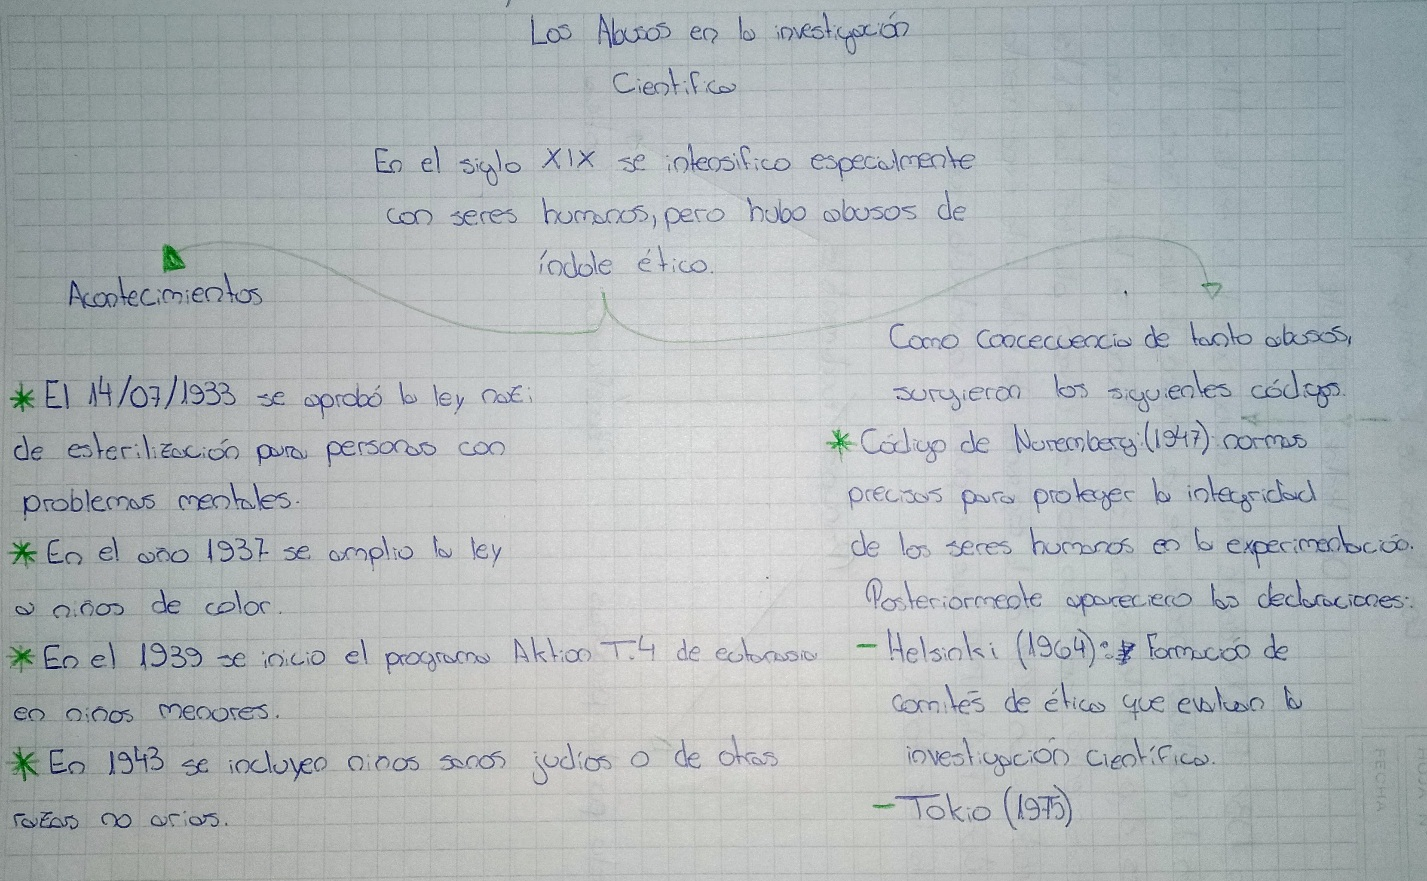 Los Abusos en la investigación
Cientifica
En el siglo XIX se intensifico especalmente
con seres humanos, pero hubo abusos de
índole ético.
Acontecimientos
* El 14/07/1933 se aprobó la ley nazi
de esterilización para personas con
problemas mentales.
* En el ano 1937 se amplio la ley
a ninos de color.
* En el 1939 se inicio el programa Aktion T.4 de eutanasia
en ninos menores.
* En 1943 se incluyen ninos sanos judios o de otras
razas no arias.
Como concecuencia de tanto abusos,
surgieron los siguientes códigos.
* Código de Noremberg (1947) normas
precisas para proteger la integridad
de los seres humanos en la experimentación.
Posteriormente aparecieno las declaraciones:
- Helsinki (1964): Formación de
comités de ética que evaluan la
investigación científica.
- Tokio (1975)
FECHA